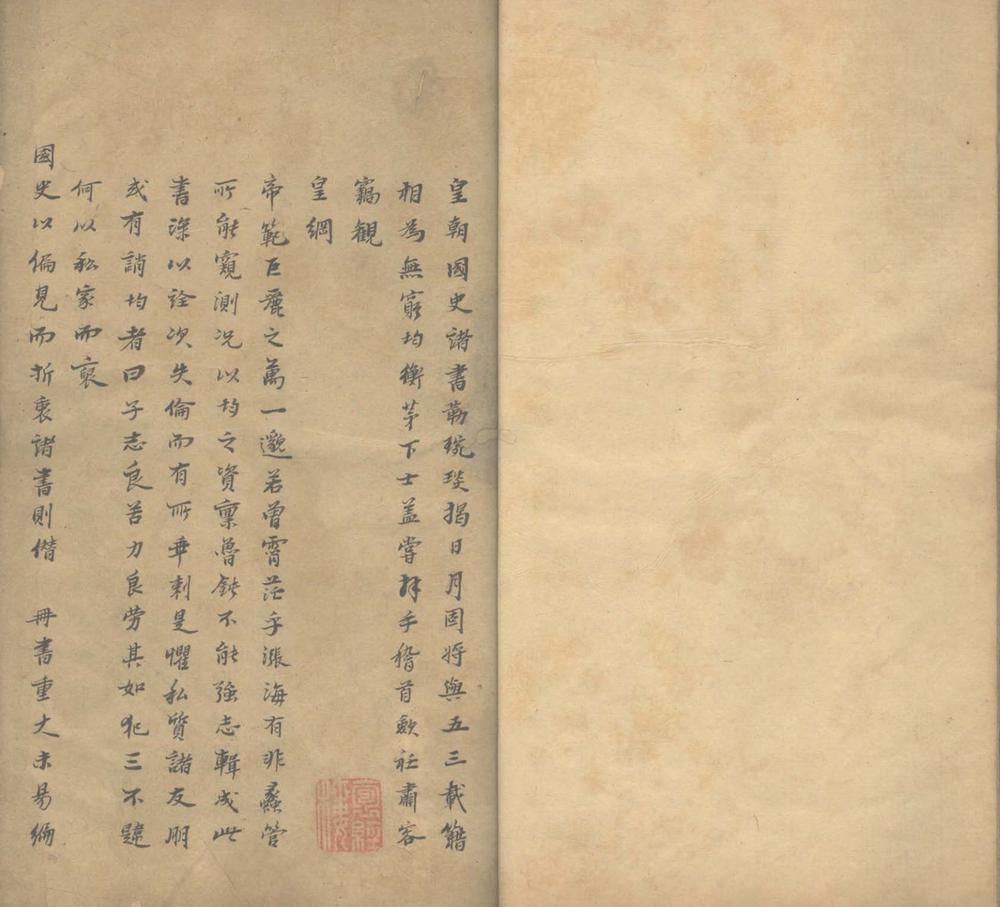 皇朝國史諸書勒琬琰揭日月固將與五三載籍
相為無窮均衡茅下士蓋嘗拜手稽首歛衽肅容
竊觀
皇綱
帝範巨麗之萬一邈若曾霄茫乎漲海有非蠡管
所能窺測况以均之資稟魯鈍不能強志輯成此
書深以詮次失倫而有所乖剌是懼私質諸友朋
或有誚均者曰子志良苦力良勞其如犯三不韙
何以私家而裒
國史以偏見而折衷諸書則僭 冊書重大未易編